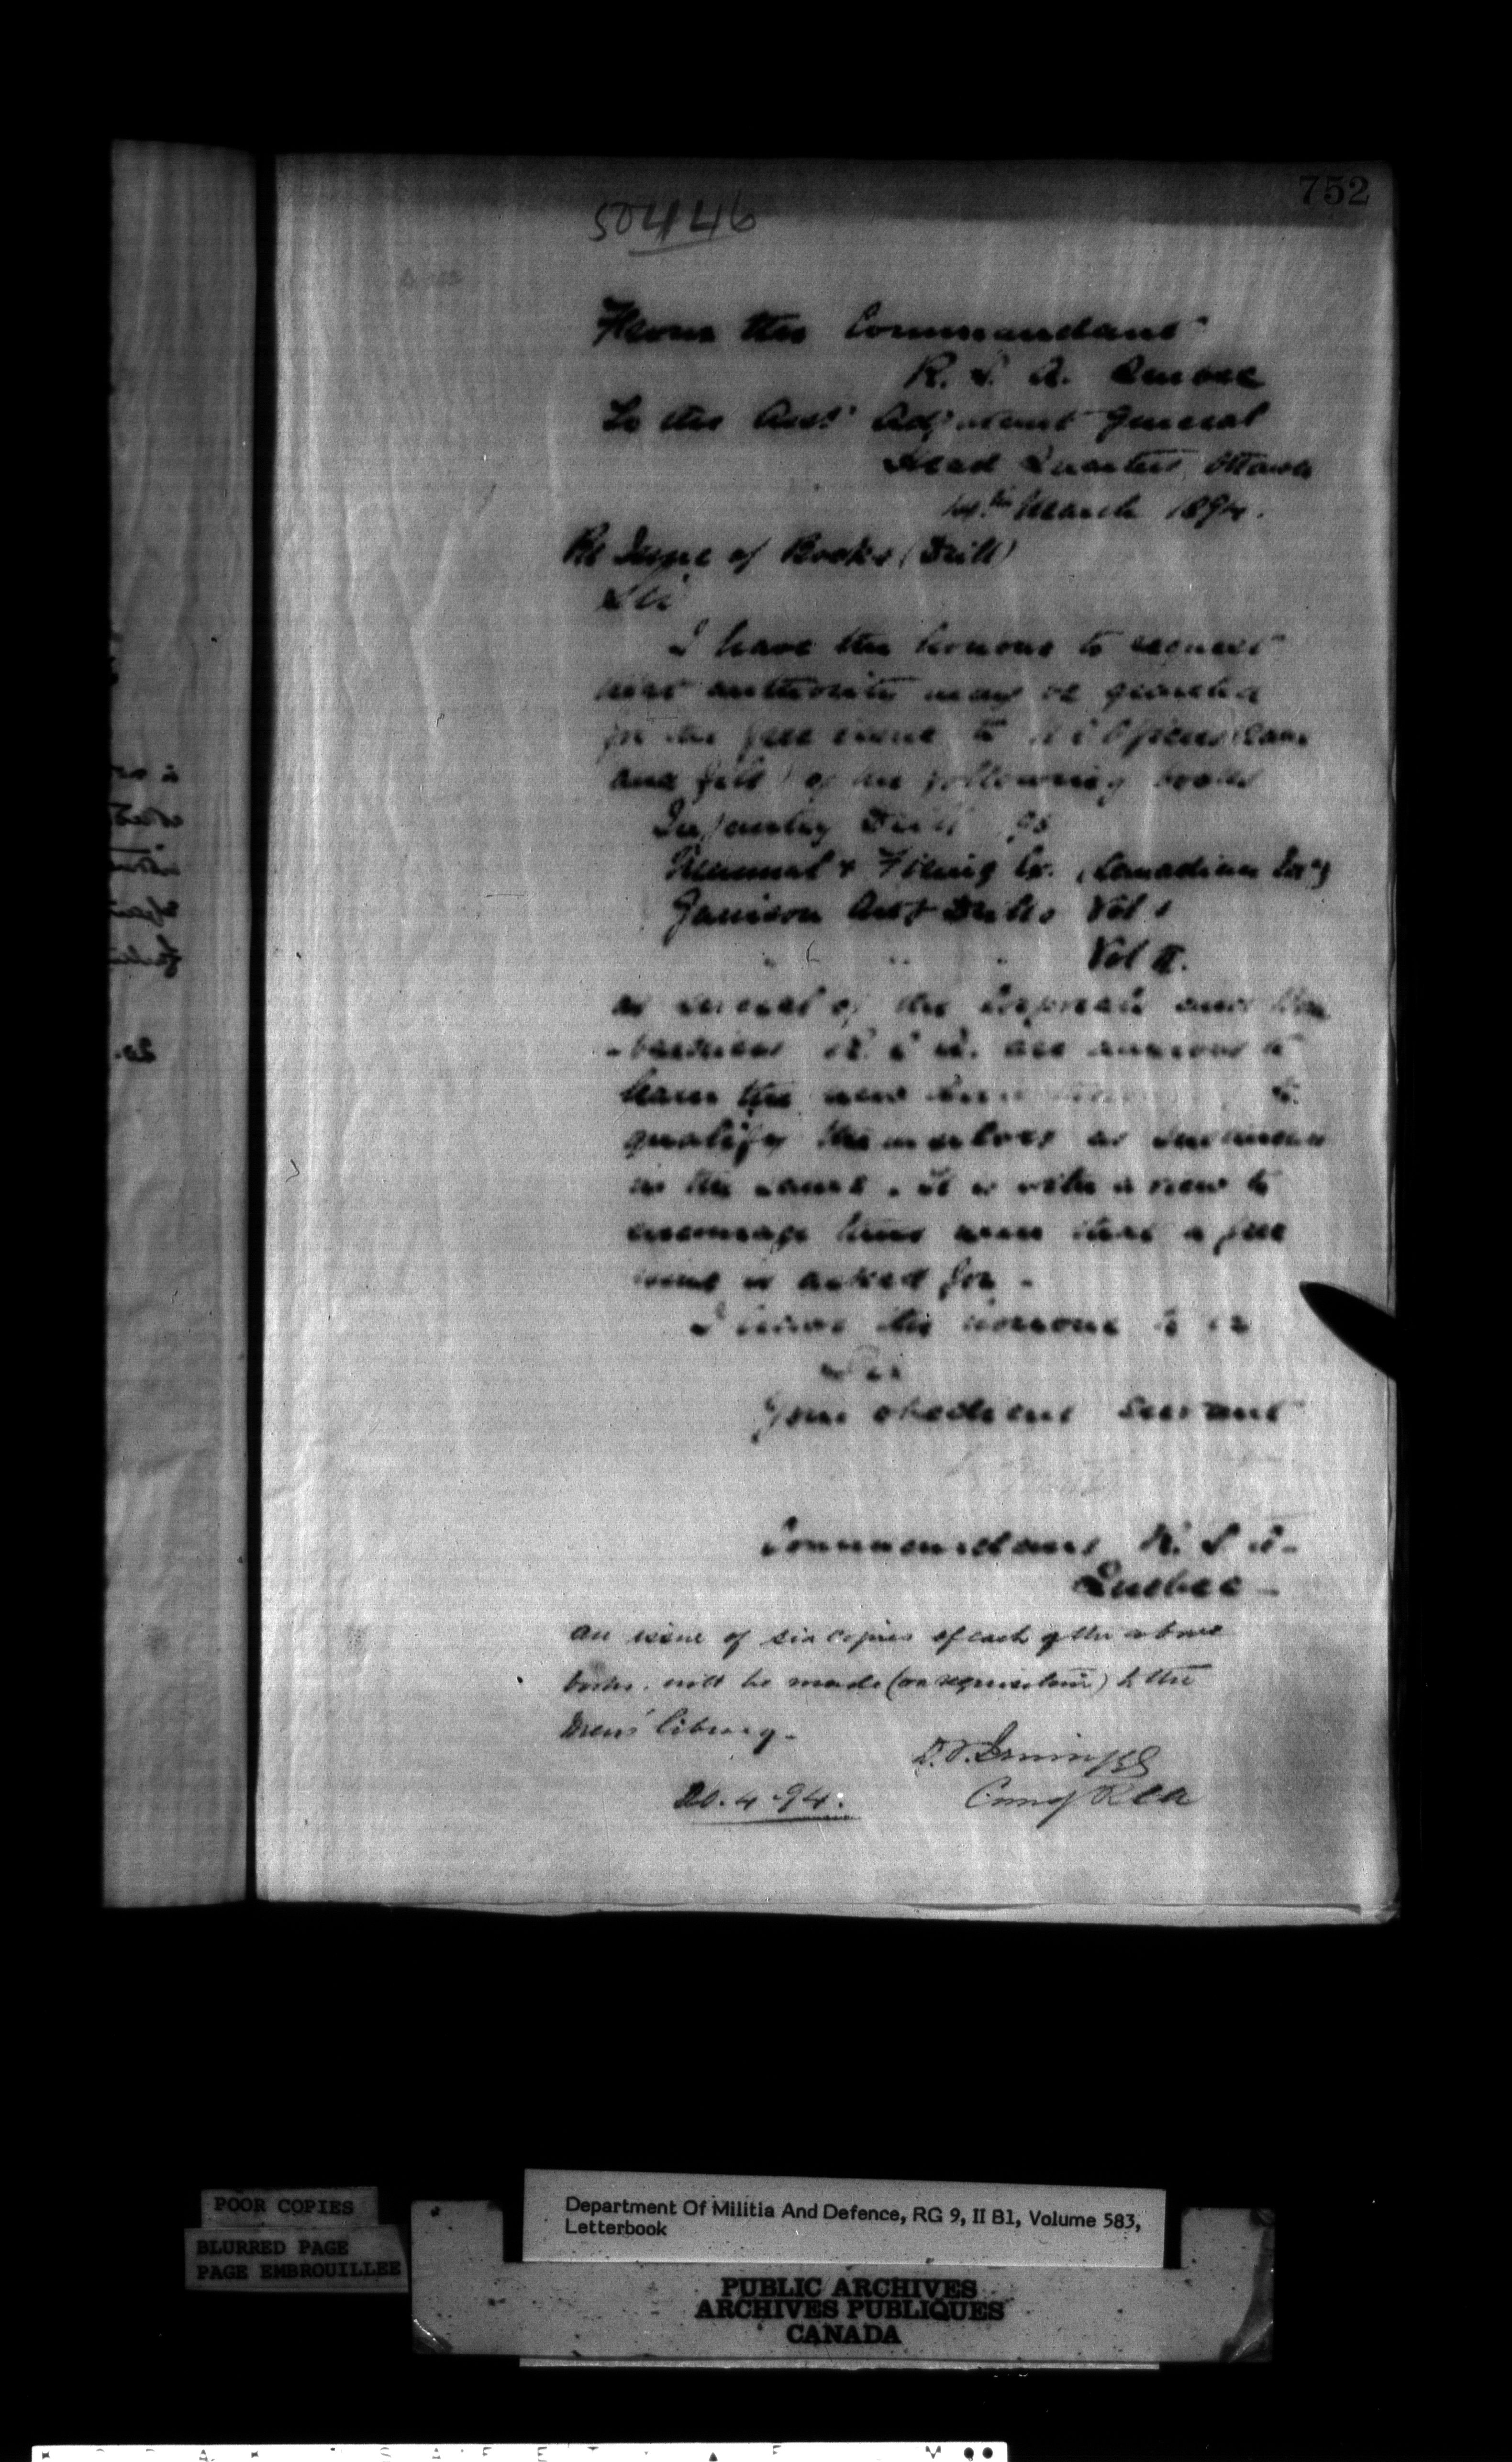 752
50446
From the Commandant
R. S. A. Quebec
To the Asst Adjutant General
Head Quarters, Ottawa
March 1894.
Re Issue of Books (Drill)
Sir
I have the honour to request
that authority may be granted
for the free issue to
and file) of the following books
Infantry Drill 93
Manual & Firing Ex. (Canadian
Garrison Art Drills Vol I
" " " Vol II.
as several of the Corporals and Bom
-bardiers are anxious to
learn the new
qualify themselves as
in the same. It is with a view to
encourage these men that a free
issue is asked for -
I have the honour to be
Sir
Your obedient servant
Commandant R. S. A-
Quebec -
An issue of six copies of each of the above
books will be made (on requisition) to the
Mens' library -
Irving
20.4.94. Comg RCA
POOR COPIES
BLURRED PAGE
PAGE EMBROUILLEE
Department Of Militia And Defence, RG 9, II B1, Volume 583,
Letterbook
PUBLIC ARCHIVES
ARCHIVES PUBLIQUES
CANADA